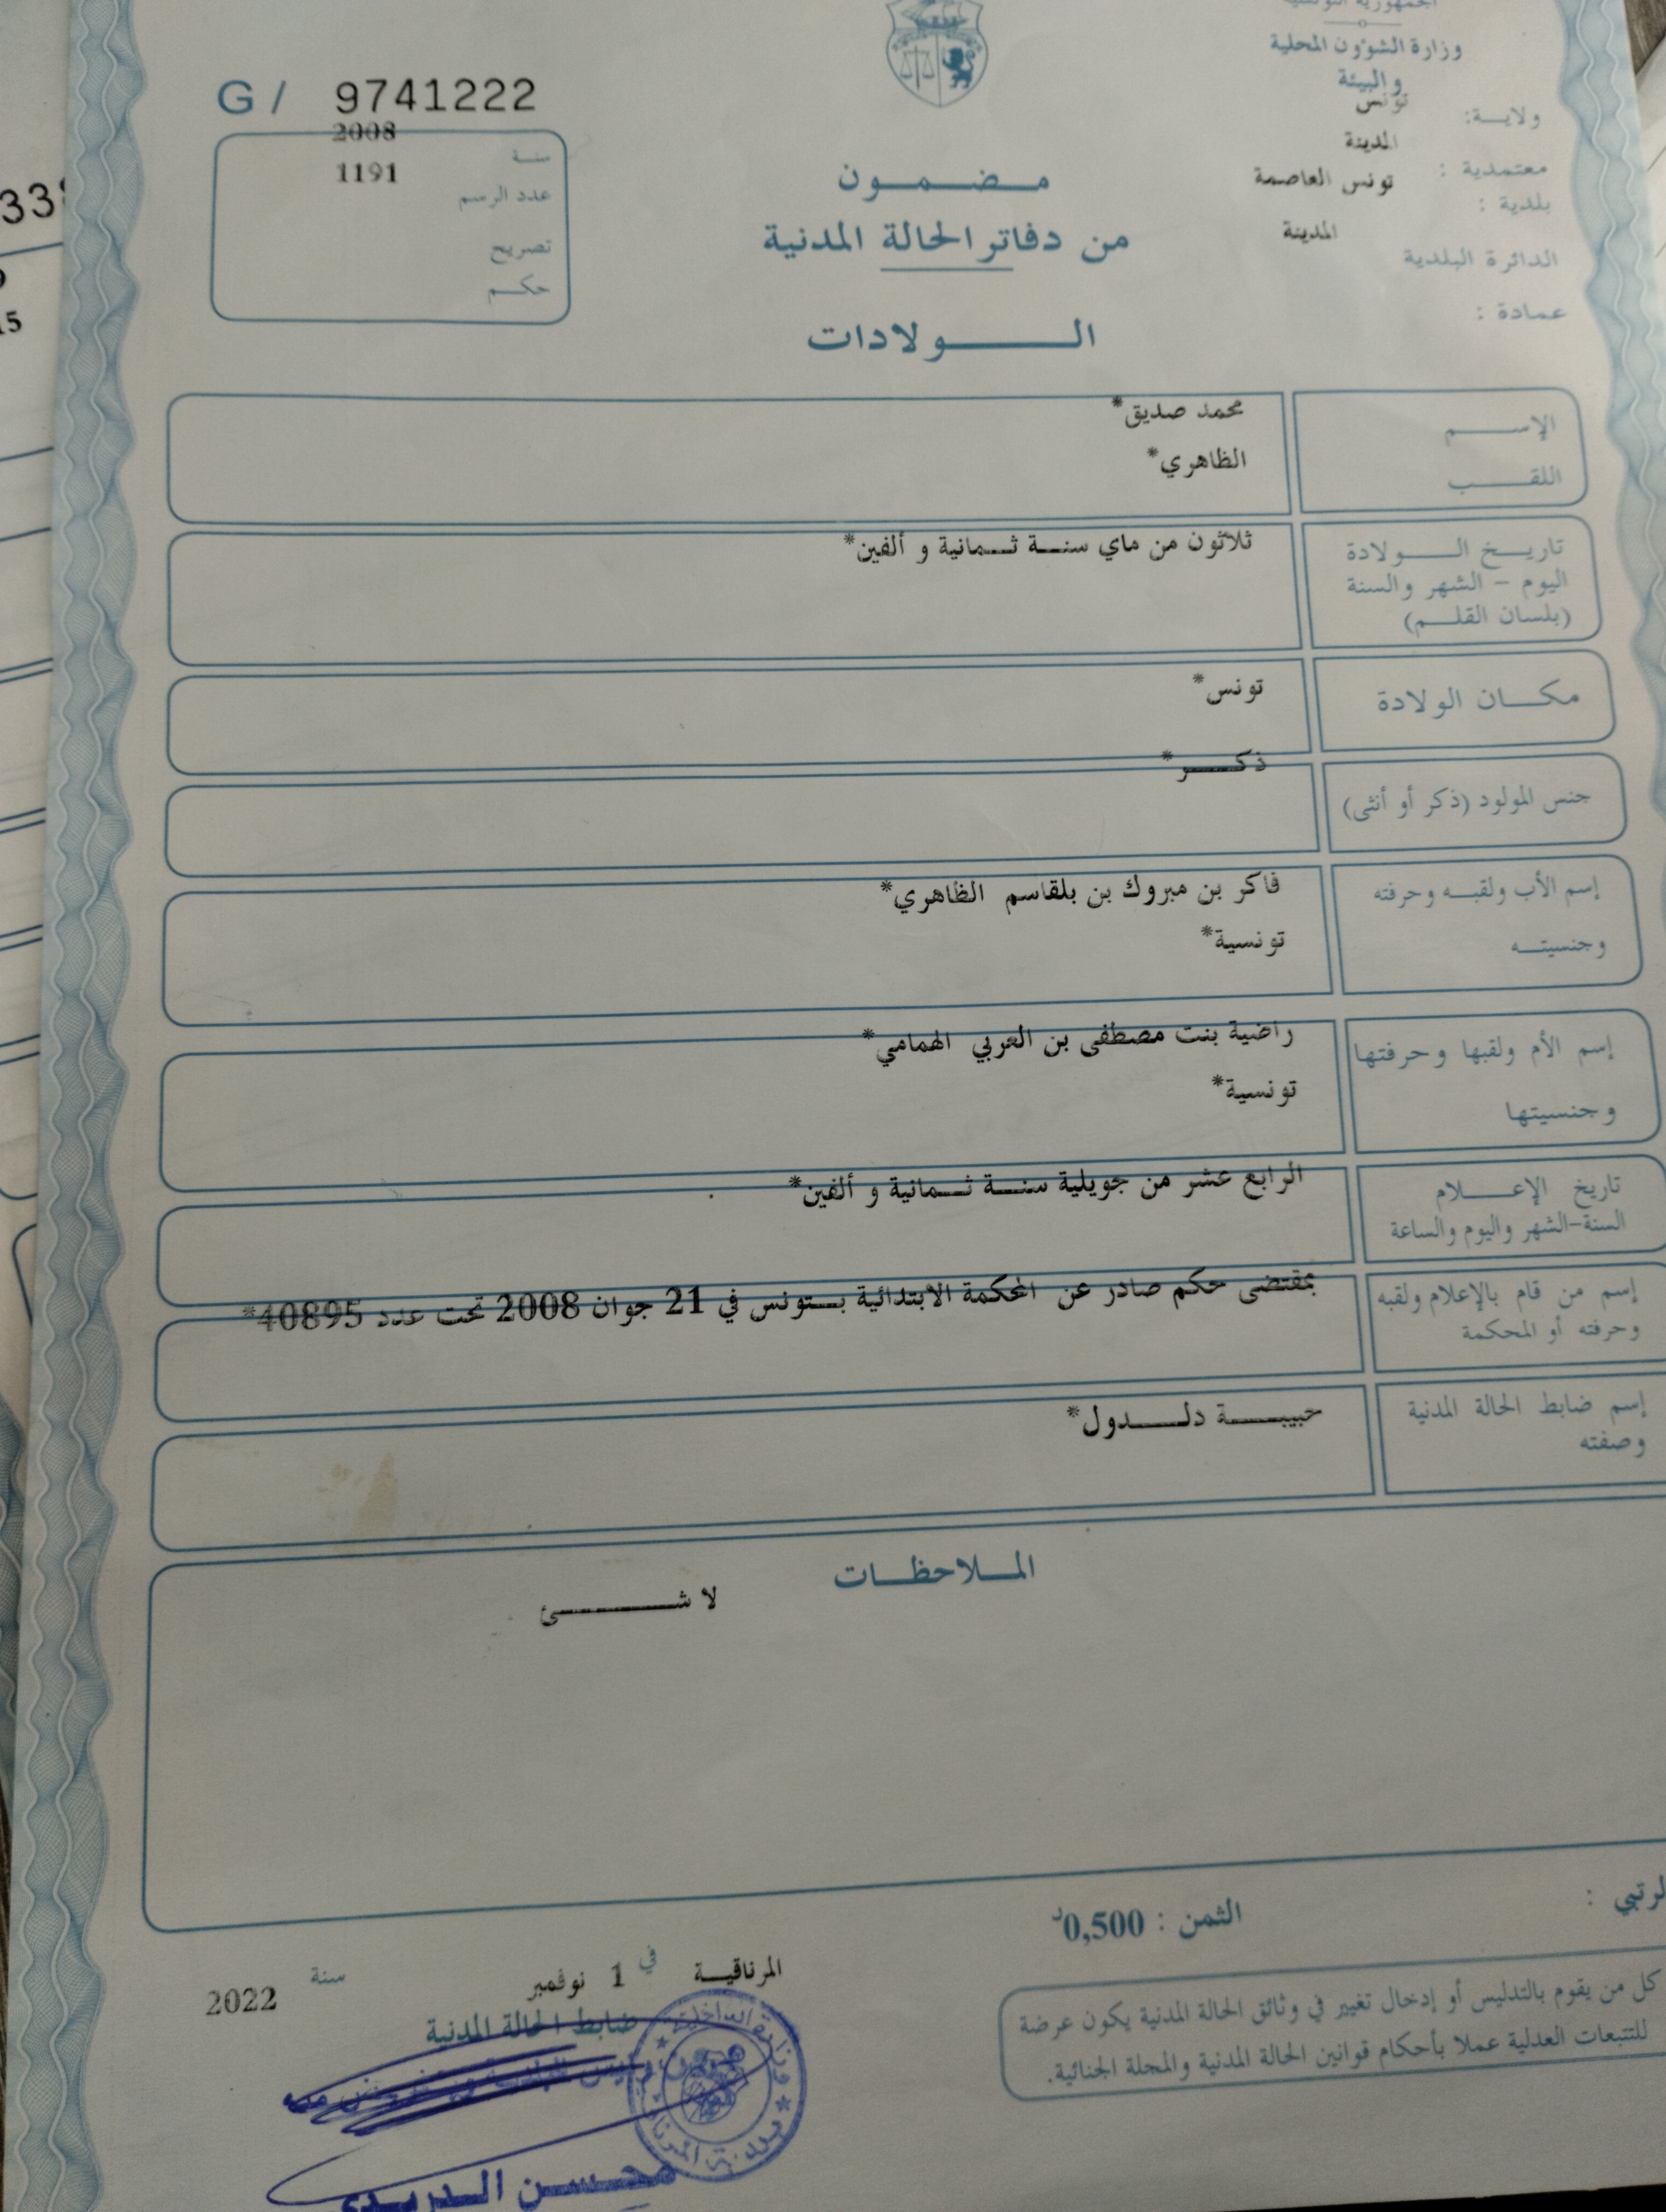 الجمهورية التونسية
وزارة الشؤون المحلية
والبيئة
ولايـة: تونس
المدينة
معتمدية :
تونس العاصمة
بلدية :
المدينة
الدائرة البلدية
عمادة :
G / 9741222
2008
سنة
1191
عدد الرسم
تصريح
حكم
مضمون
من دفاتر الحالة المدنية
الولادات
الإسم محمد صديق*
اللقب الظاهري*
تاريخ الولادة ثلاثون من ماي سنة ثمانية و ألفين*
اليوم – الشهر والسنة
(بلسان القلم)
مكان الولادة تونس*
ذكر*
جنس المولود (ذكر أو أنثى)
إسم الأب ولقبه وحرفته فاكر بن مبروك بن بلقاسم الظاهري*
وجنسيته تونسية*
إسم الأم ولقبها وحرفتها راضية بنت مصطفى بن العربي الهمامي*
وجنسيتها تونسية*
تاريخ الإعلام الرابع عشر من جويلية سنة ثمانية و ألفين*
السنة-الشهر واليوم والساعة
إسم من قام بالإعلام ولقبه بمقتضى حكم صادر عن المحكمة الابتدائية بتونس في 21 جوان 2008 تحت عدد 40895*
وحرفته أو المحكمة
إسم ضابط الحالة المدنية حبيبة دلدول*
وصفته
الملاحظات
لا شئ
الثمن : 0,500د
كل من يقوم بالتدليس أو إدخال تغيير في وثائق الحالة المدنية يكون عرضة
للتتبعات العدلية عملا بأحكام قوانين الحالة المدنية والمجلة الجنائية.
المرناقية في 1 نوفمبر سنة 2022
ضابط الحالة المدنية
وزارة الداخلية
محسن الدريدي
338
15